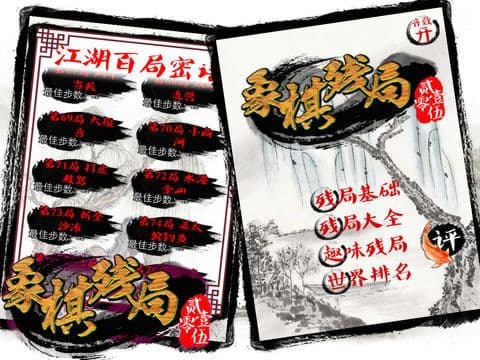 江湖百局密
连营
最佳步数:
最佳步数:
第69局
第70局 小商
河
最佳步数:
最佳步数:
第71局 打虎
第72局 水淹
金山
最佳步数:
最佳步数:
第73局
第74局
钓鱼
最佳步数:
最佳步数:
象棋残局
贰零壹伍
音效
开
象棋残局
贰零壹伍
残局基础
残局大全
趣味残局
世界排名
评